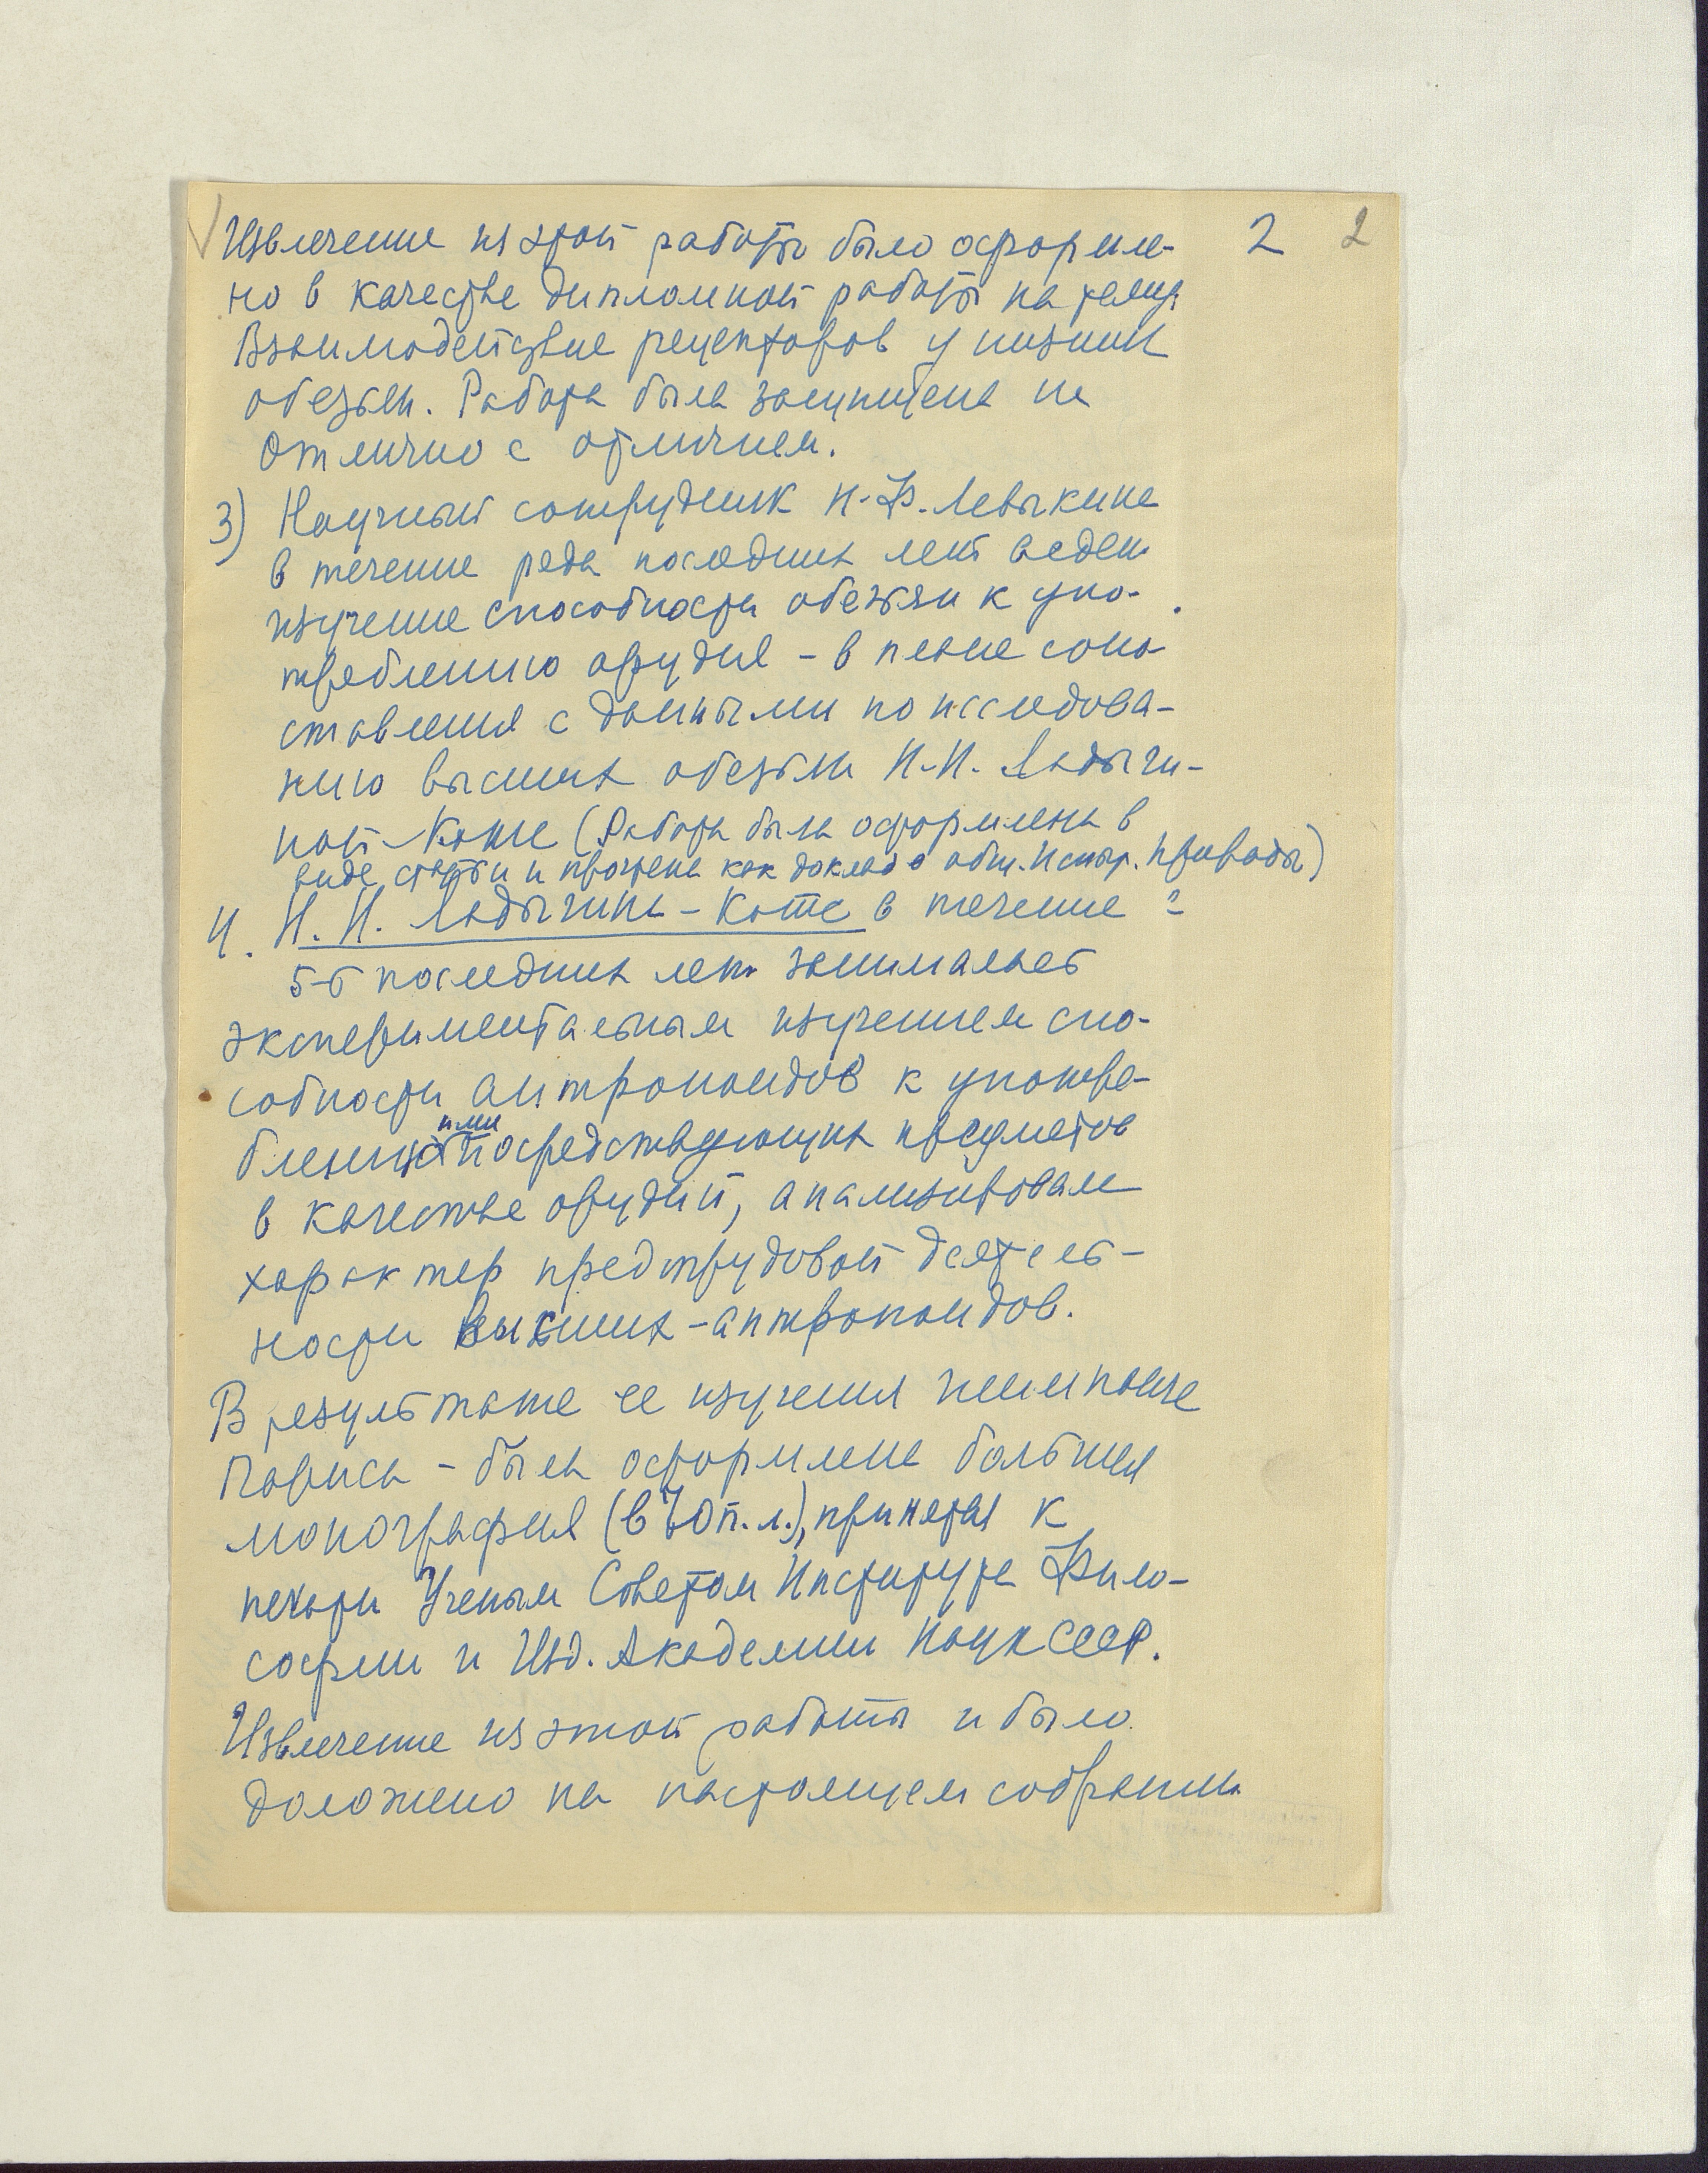 2 2
Извлечение из этой работы было оформле-
но в качестве дипломной работы на тему:
Взаимодействие рецепторов у низших
обезьян. Работа была защищена на
отлично с отличием.
3) Научный сотрудник Н.Ф. Левыкина
в течение ряда последних лет ведет
изучение способности обезьян к упо-
треблению орудия – в плане сопо-
ставления с данными по исследова-
нию высших обезьян Н.Н. Ладыги-
ной-Котс (Работа была оформлена в
виде статьи и прочтена как доклад в общ. Испыт. Природы)
4. Н. Н. Ладыгина – Котс в течение
5-6 последних лет занималась
экспериментальным изучением спо-
собности антропоидов к употре-
блению ими посредствующих предметов
в качестве орудий, анализировала
характер предтрудовой деятель-
ности высших – антропоидов.
В результате ее изучения шимпанзе
Париса – была оформлена большая
монография (в 70 п. л.), принятая к
печати Ученым Советом Института Фило-
софии и Изд. Академии Наук СССР.
Извлечение из этой работы и было
доложено на настоящем собрании